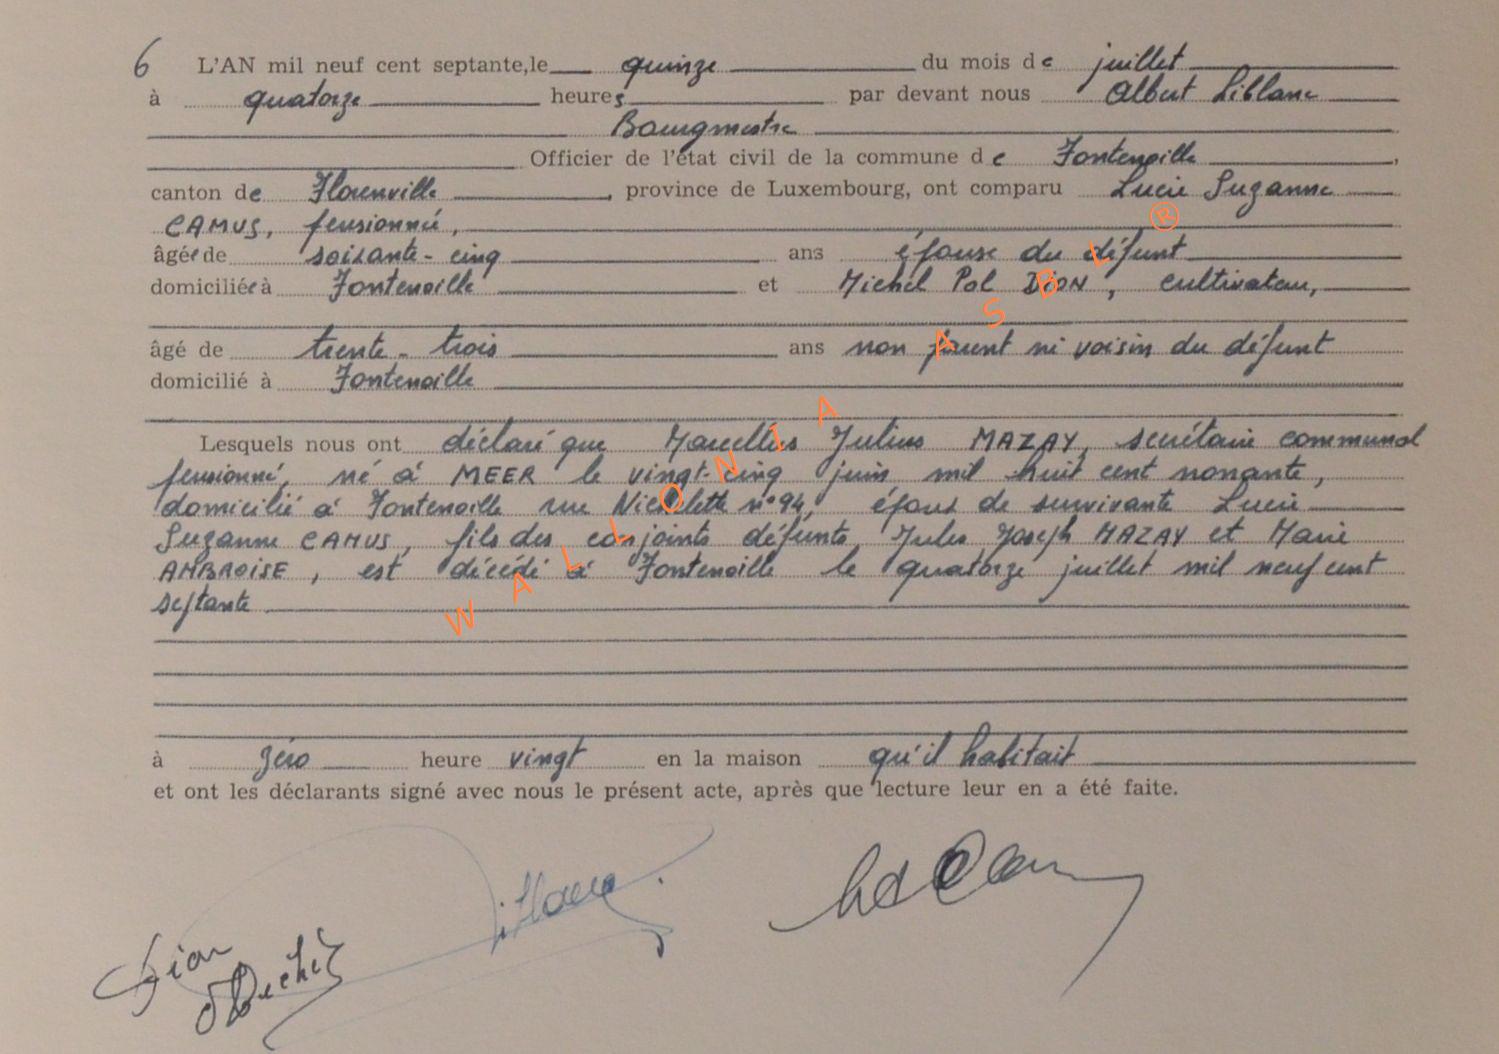 6 L'AN mil neuf cent septante, le quinze du mois de juillet
à quatorze heures par devant nous Albert Leblanc
Bourgmestre
Officier de l'état civil de la commune de Fontenoille,
canton de Florenville, province de Luxembourg, ont comparu Lucie Suzanne
CAMUS, pensionné,
âgée de soixante-cinq ans épouse du défunt
domiciliée à Fontenoille et Michel Pol DION, cultivateur,
âgé de trente-trois ans non parent ni voisin du défunt
domicilié à Fontenoille
Lesquels nous ont déclaré que Marcellus Julius MAZAY, secrétaire communal
pensionné, né à MEER le vingt-cinq juin mil huit cent nonante,
domicilié à Fontenoille rue n°94, époux de survivante Lucie
Suzanne CAMUS, fils des conjoints défunts Jules Joseph MAZAY et Marie
AMBROISE, est décédé à Fontenoille le quatorze juillet mil neuf cent
septante
à zéro heure vingt en la maison qu'il habitait
et ont les déclarants signé avec nous le présent acte, après que lecture leur en a été faite.
Dion
Michel
WALLONIA ASBL ®